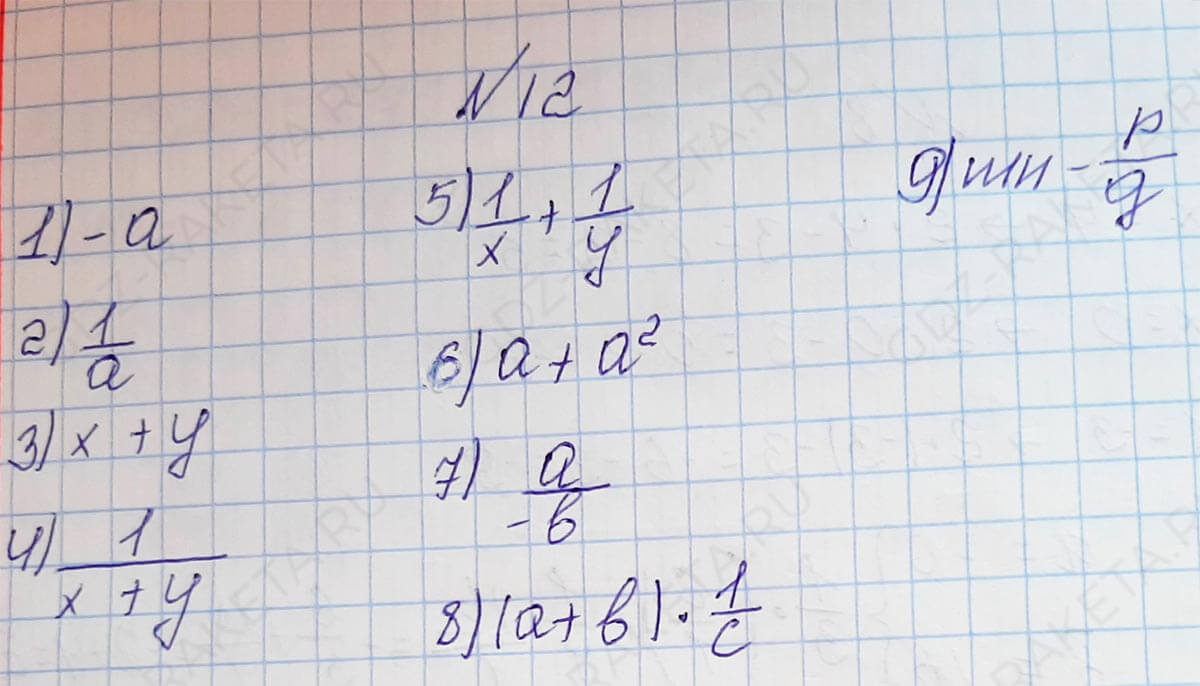 №12
1) -a
2) 1/a
3) x + y
4) 1/(x + y)
5) 1/x + 1/y
6) a + a²
7) a/-b
8) (a + b) · 1/c
9) mn - p/q
DZ-RAKETA.RU